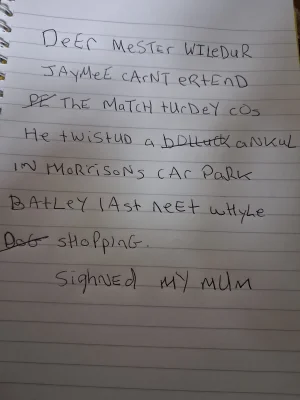 DeEr MeSTer WILeDUR
JAyMeE cArNT erTEnD
THE MaTCH tUrDEY cOS
He twistUD a aNKUL
IN MORriSoNS CAr PaRK
BAtLeY lAst neET wHyLe
SHoPpInG.
SigHNed MY MUM